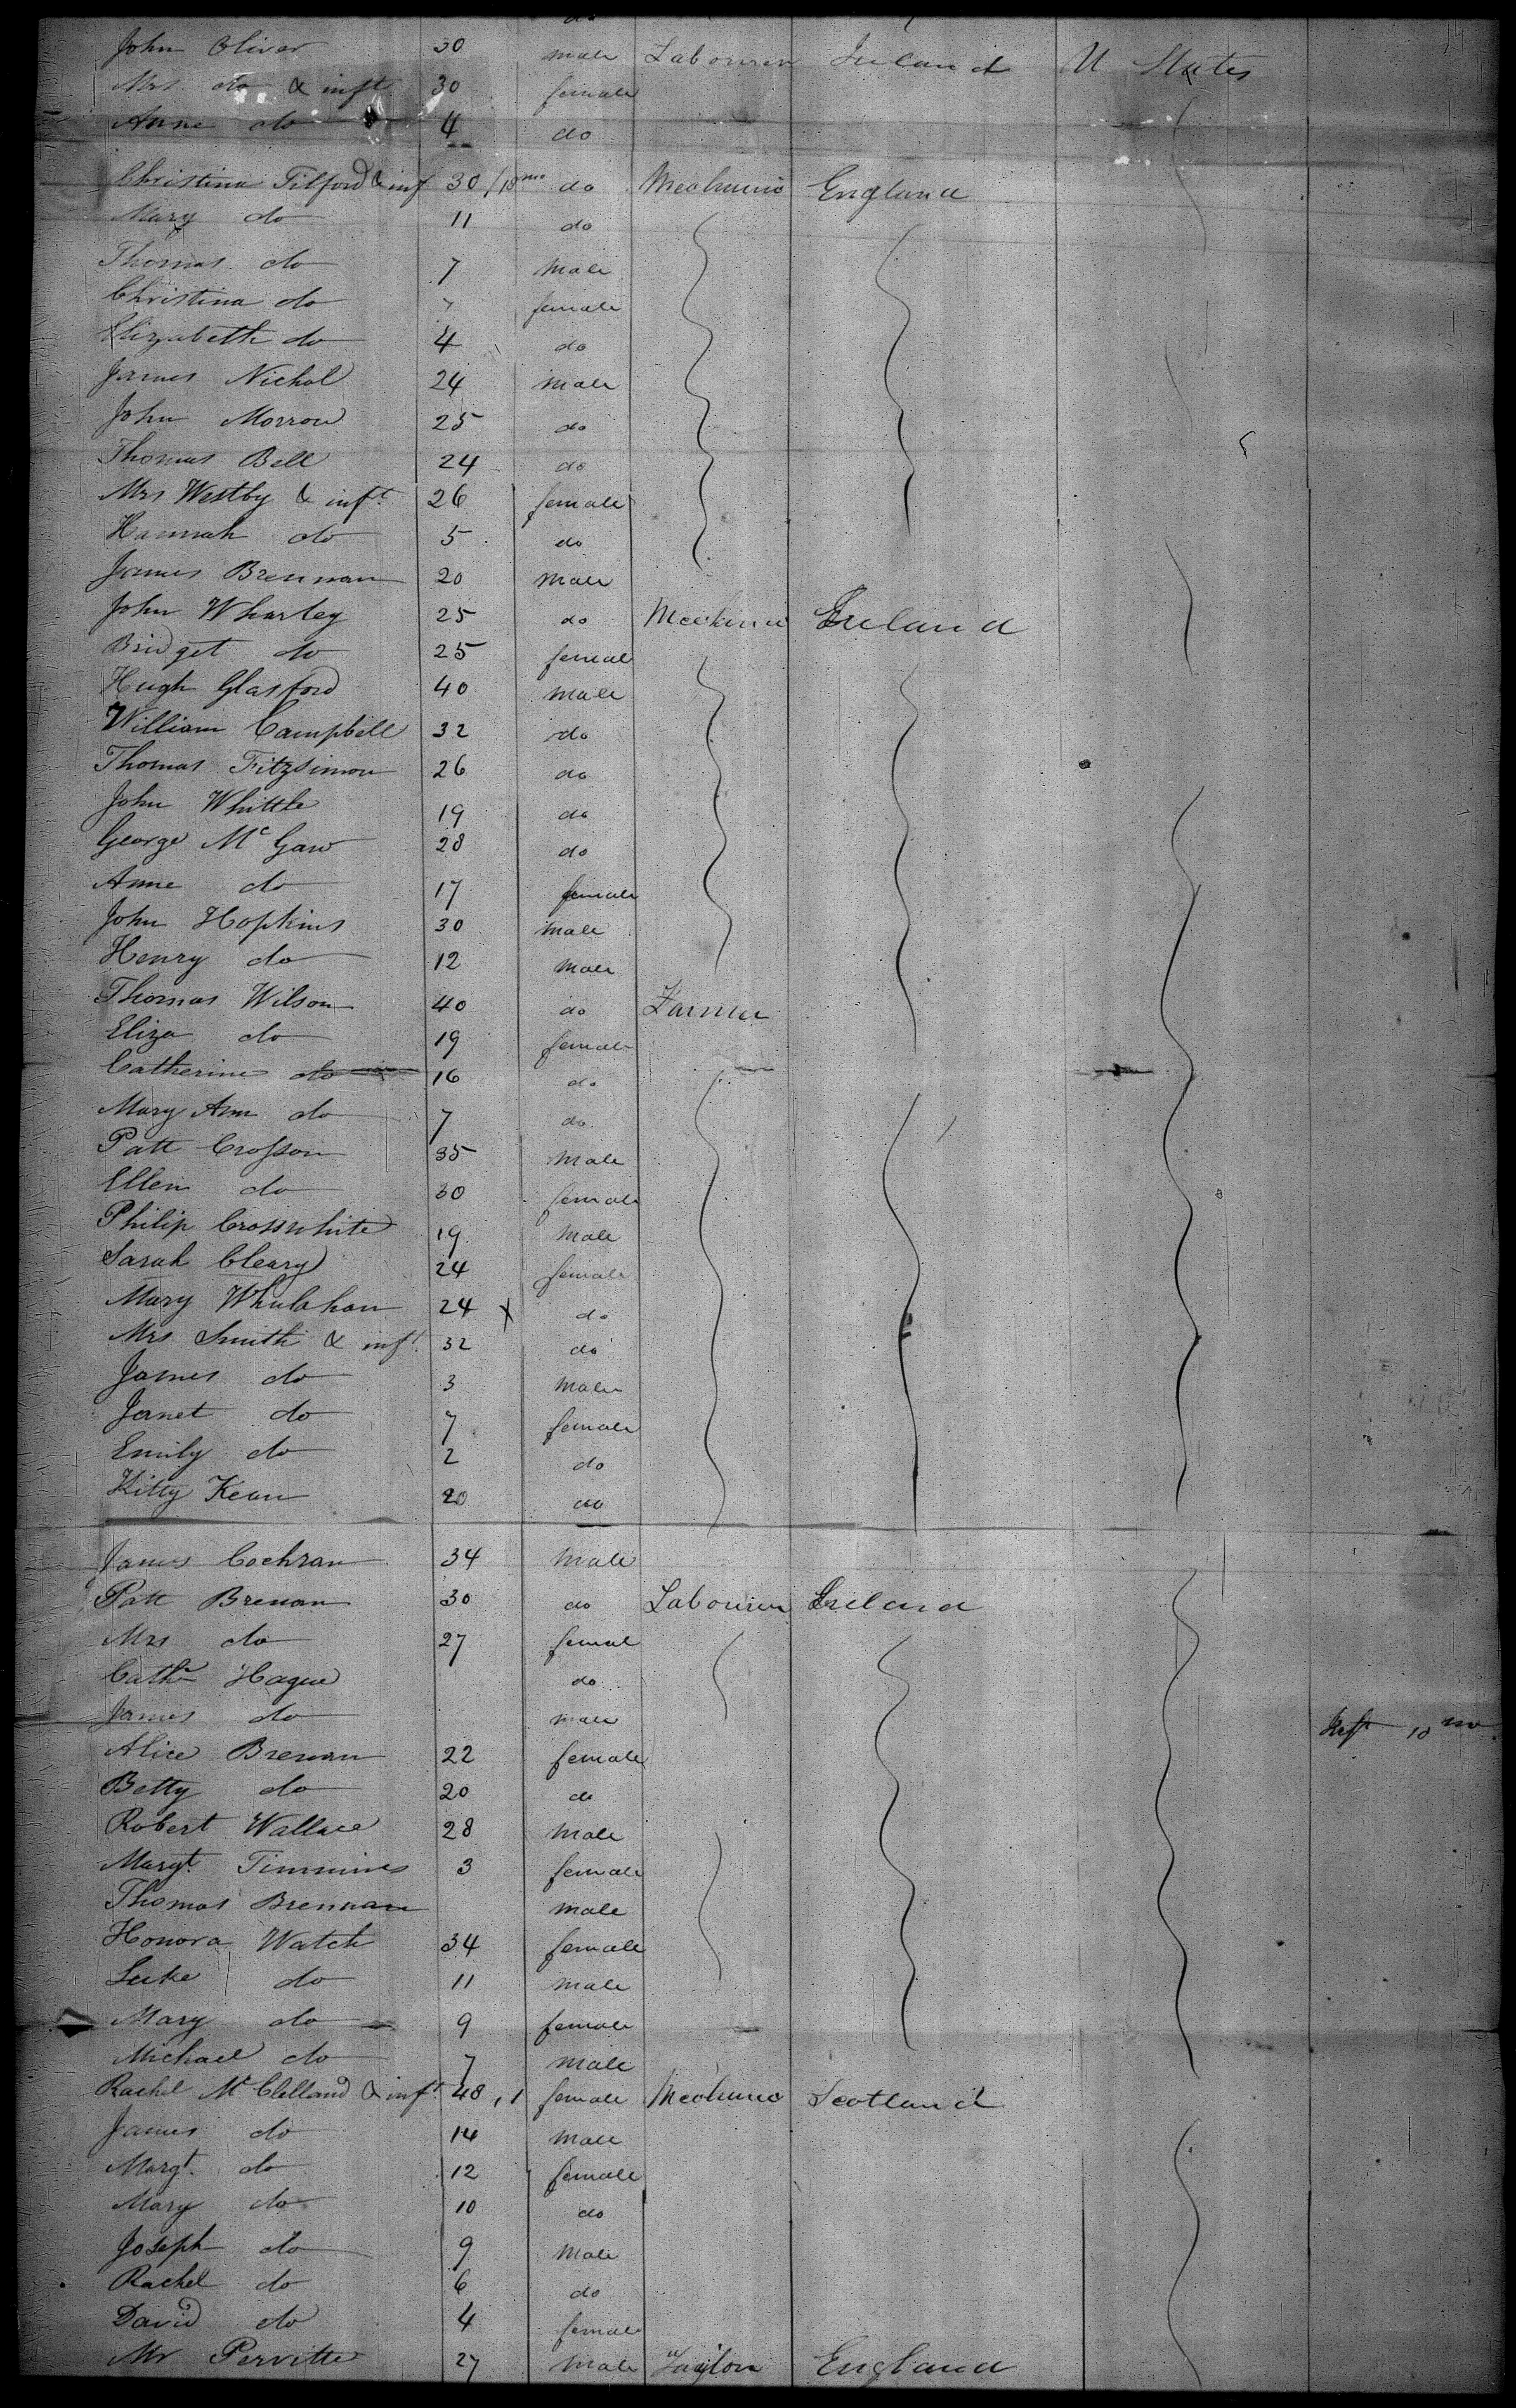 do
John Oliver 30 male Labourer Ireland U States
Mrs do & inft 30 female
Anne do 4 do
Christina Tilford & inf 30/10mo do Mechanic England
Mary do 11 do
Thomas do 7 male
Christina do 7 female
Elizabeth do 4 do
James Nichol 24 male
John Morrow 25 do
Thomas Bell 24 do
Mrs Westby & inft. 26 female
Hannah do 5 do
James Brennan 20 male
John Wharley 25 do Mechanic Ireland
Bridget do 25 femal
Hugh Glasford 40 male
William Campbell 32 do
Thomas Fitzsimon 26 do
John Whittle 19 do
George McGaw 28 do
Anne do 17 female
John Hopkins 30 male
Henry do 12 male
Thomas Wilson 40 do Farmer
Eliza do 19 female
Catherine do 16 do
Mary Ann do 7 do
Patt Crosson 35 male
Ellen do 30 female
Philip Crosswhite 19 male
Sarah Cleary 24 female
Mary Whulahan 24 x do
Mrs Smith & inft. 32 do
James do 3 male
Janet do 7 female
Emily do 2 do
Kitty Kean 20 do
James Cochran 34 male
Patt Brenan 30 do Labourer Ireland
Mrs do 27 femal
Cathn Hague do
James do male 10 mo
Alice Brenan 22 female
Betty do 20 do
Robert Wallace 28 male
Margt. Timmins 3 female
Thomas Brennan male
Honora Watch 34 female
Luke do 11 male
Mary do 9 female
Michael do 7 male
Rachel McClelland & inft. 48,1 female Mechanic Scotland
James do 14 male
Margt. do 12 female
Mary do 10 do
Joseph do 9 male
Rachel do 6 do
David do 4 female
Mr Pervitte 27 male Taylor England